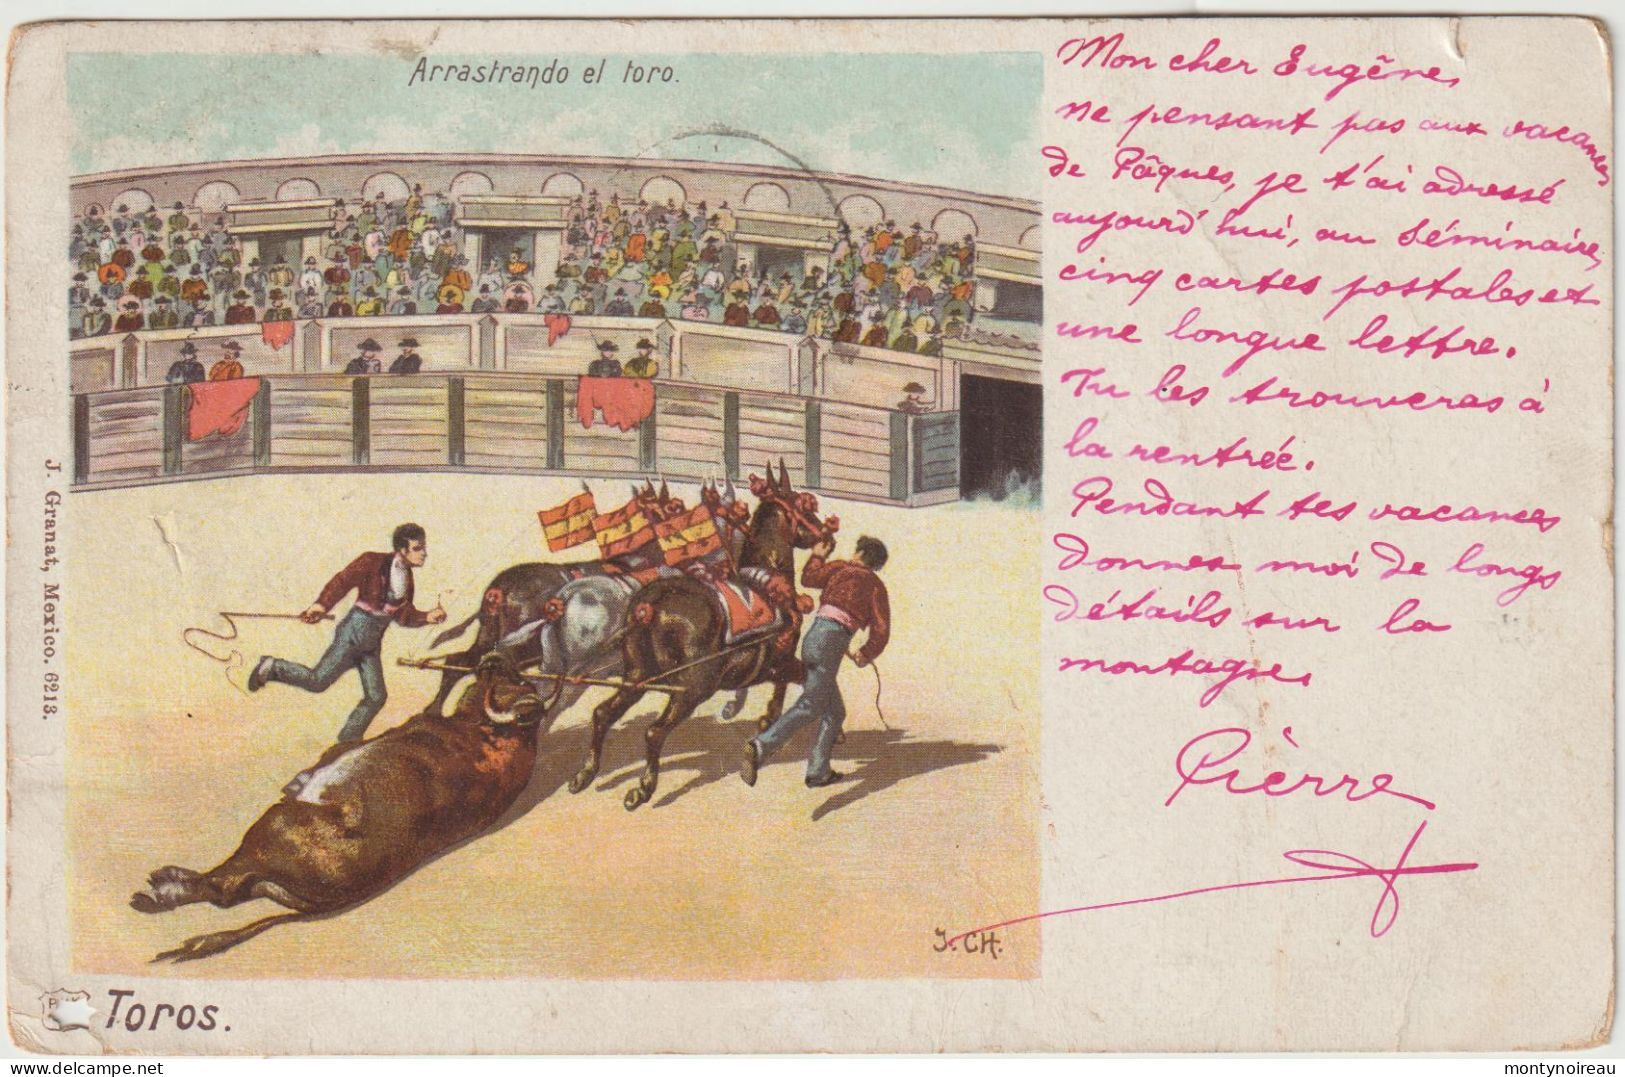 Arrastrando el toro.
Mon cher Eugêne,
ne pensant pas aux vacances
de Pâques, je t'ai adressé
aujourd'hui, au Séminaire,
cinq cartes postales et
une longue lettre.
Tu les trouveras à
la rentrée.
Pendant tes vacances
donnes moi de longs
détails sur la
montagne.
Pièrre
J. Granat, Mexico. 6213.
J. CH.
Toros.
delcampe.net
montynoireau